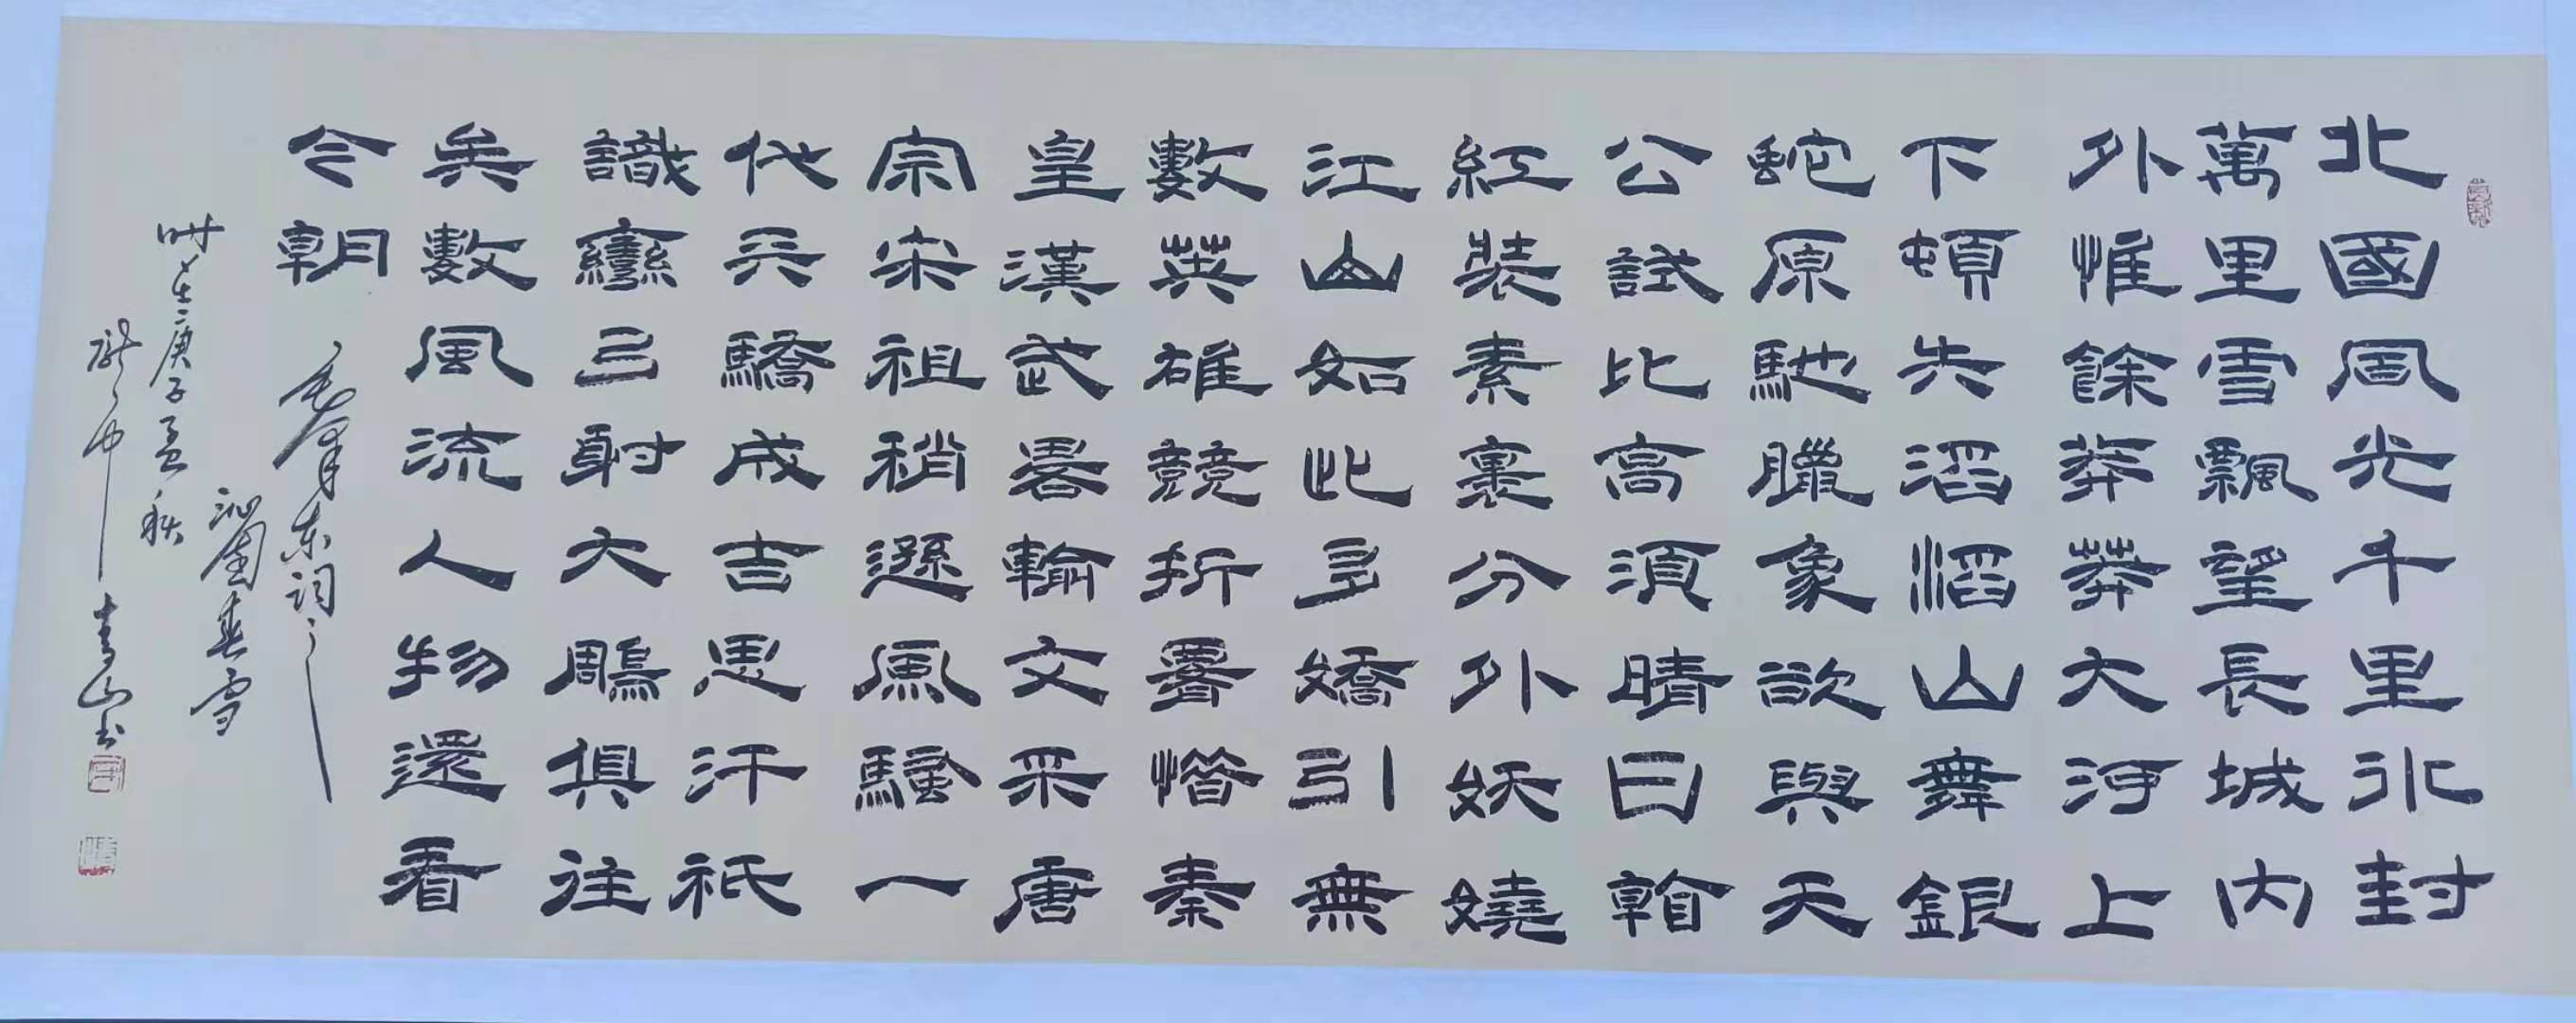 北國風光千里冰封
萬里雪飄望長城內
外惟餘莽莽大河上
下頓失滔滔山舞銀
蛇原馳臘象欲與天
公試比高須晴日看
紅裝素裹分外妖嬈
江山如此多嬌引無
數英雄競折腰惜秦
皇漢武畧輸文采唐
宗宋祖稍遜風騷一
代天驕成吉思汗祇
識彎弓射大鵰俱往
矣數風流人物還看
今朝
毛澤東詞
沁園春雪
時在庚子孟秋
青山书